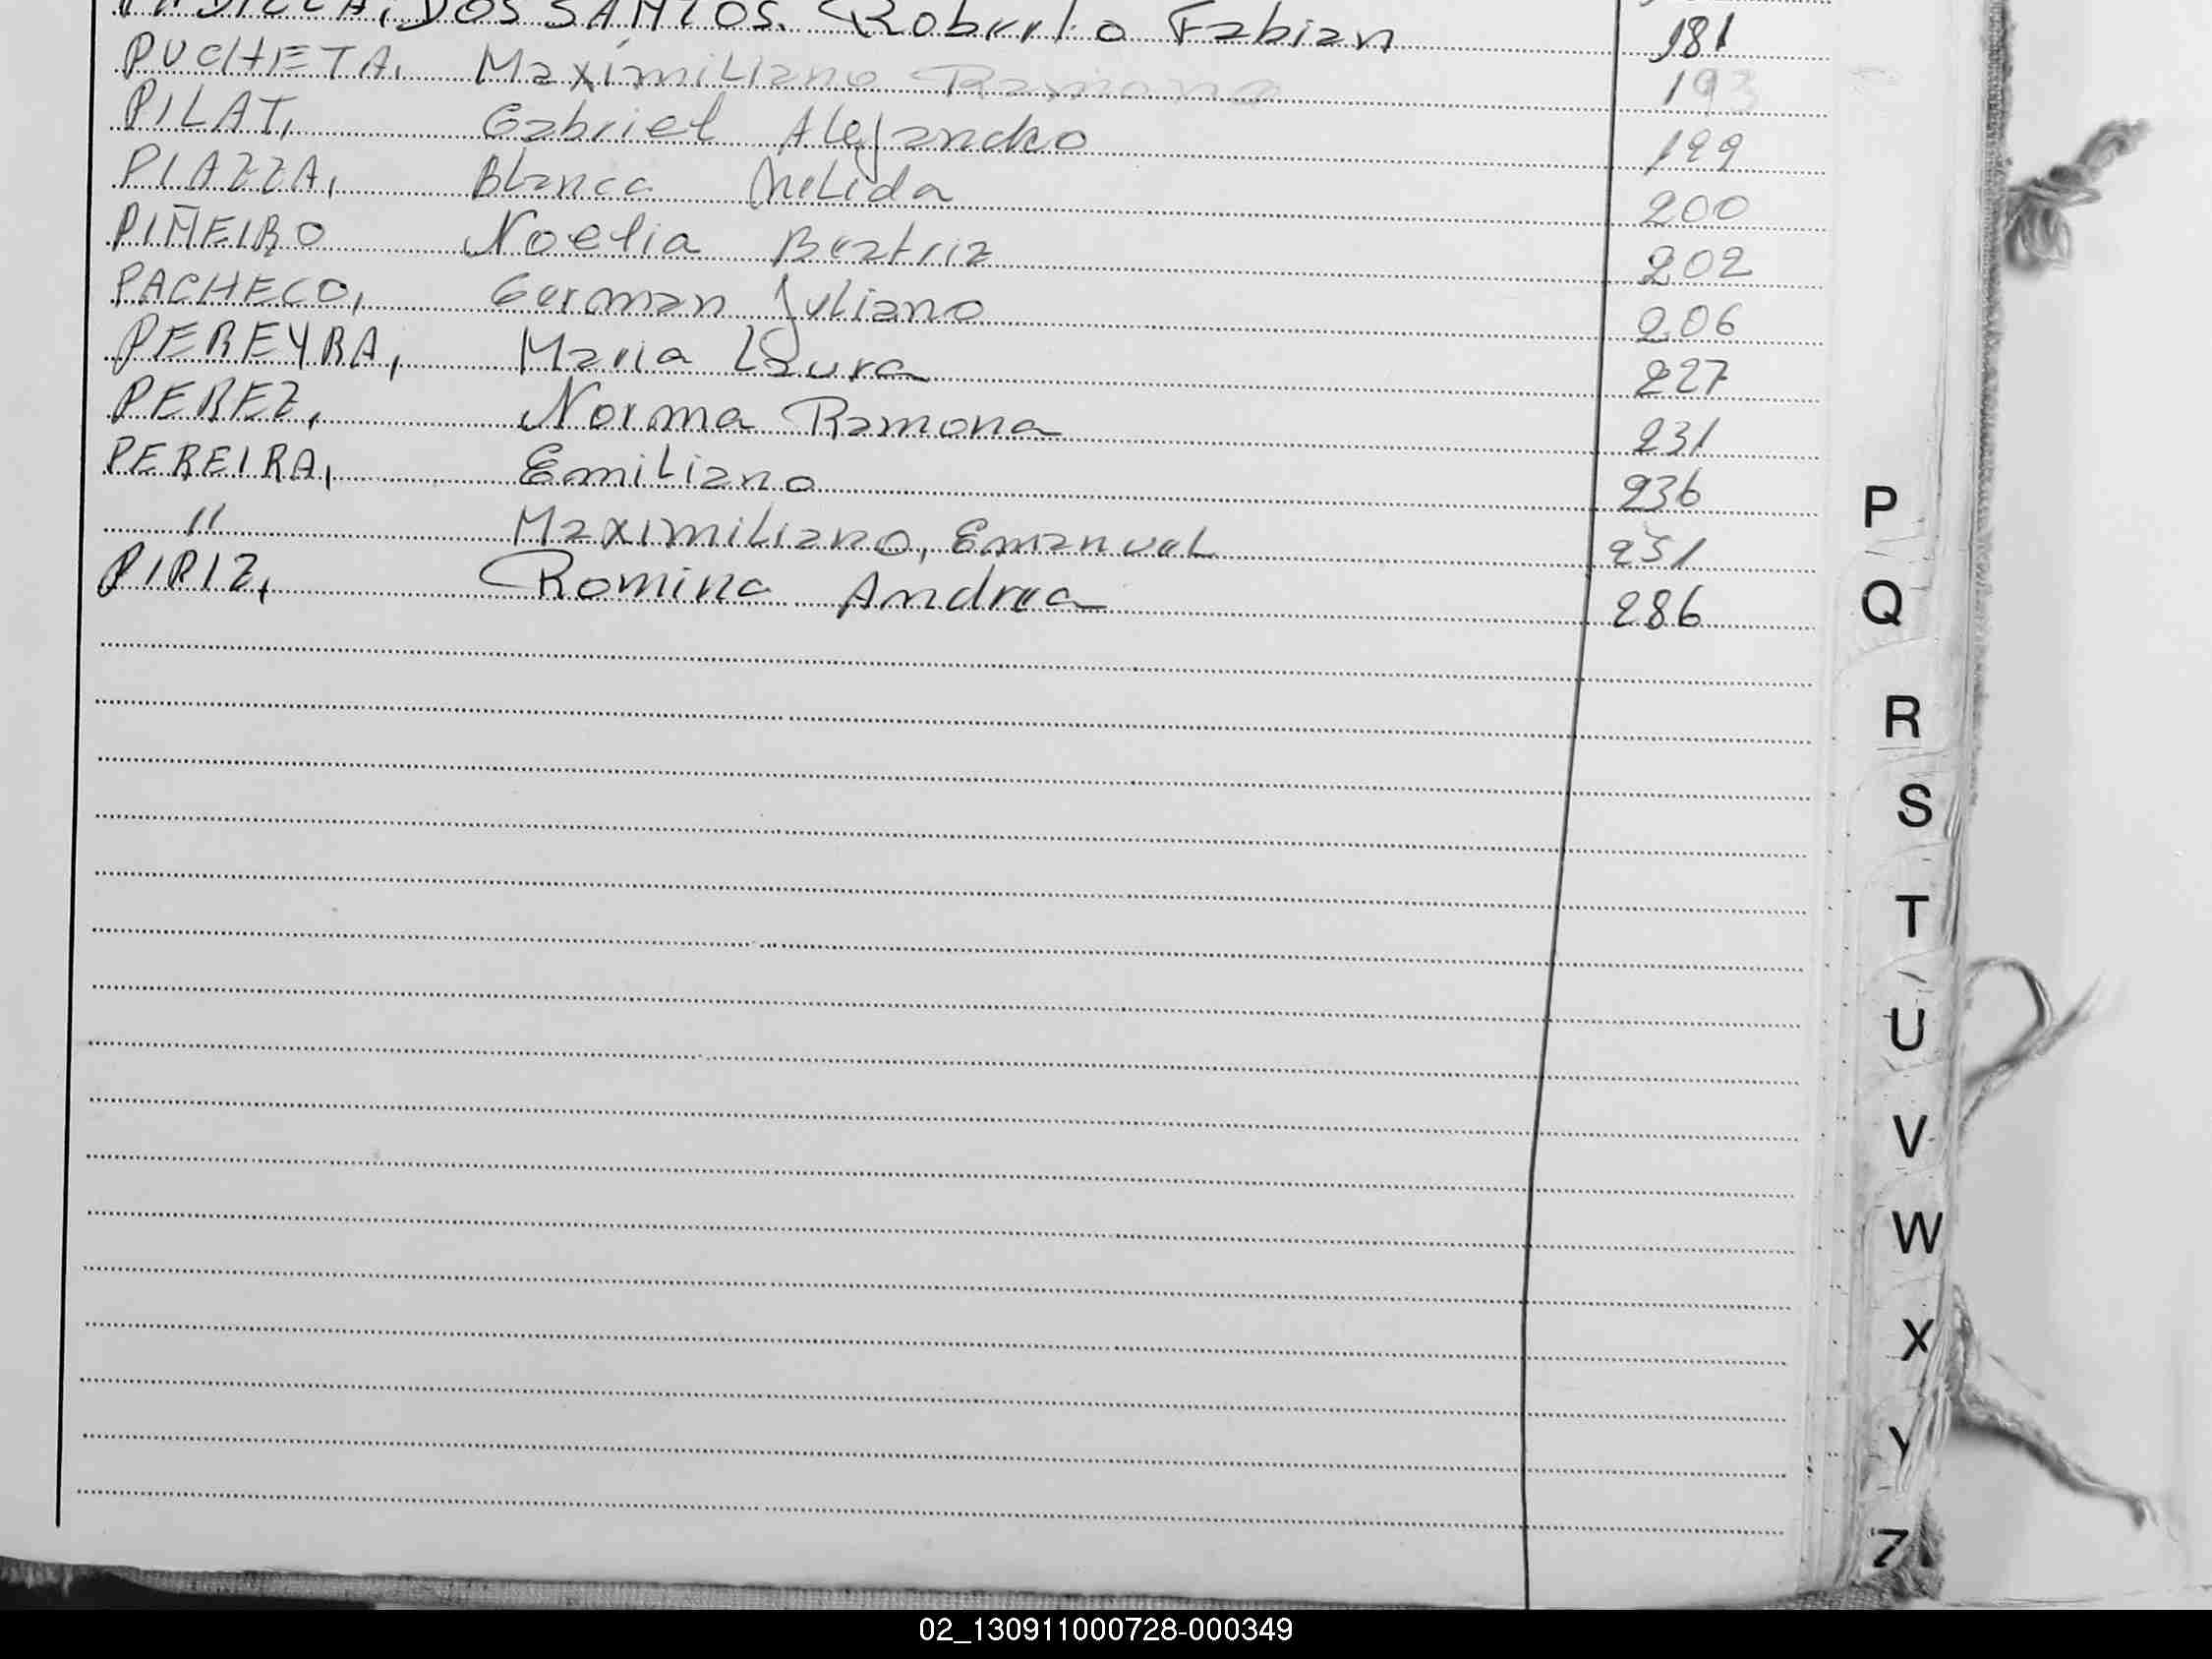 PADILLA, DOS SANTOS. Roberto Fabian 181
PUCHETA, Maximiliano Ramona 193
PILAT, Gabriel Alejandro 199
PIAZZA, Blanca Nelida 200
PIÑEIRO Noelia Beatriz 202
PACHECO, German Juliano 206
PEREYRA, Maria Laura 227
PEREZ, Norma Ramona 231
PEREIRA, Emiliano 236
" Maximiliano, Emanuel 251
PIRIZ, Romina Andrea 286
P
Q
R
S
T
U
V
W
X
Y
Z
02_130911000728-000349